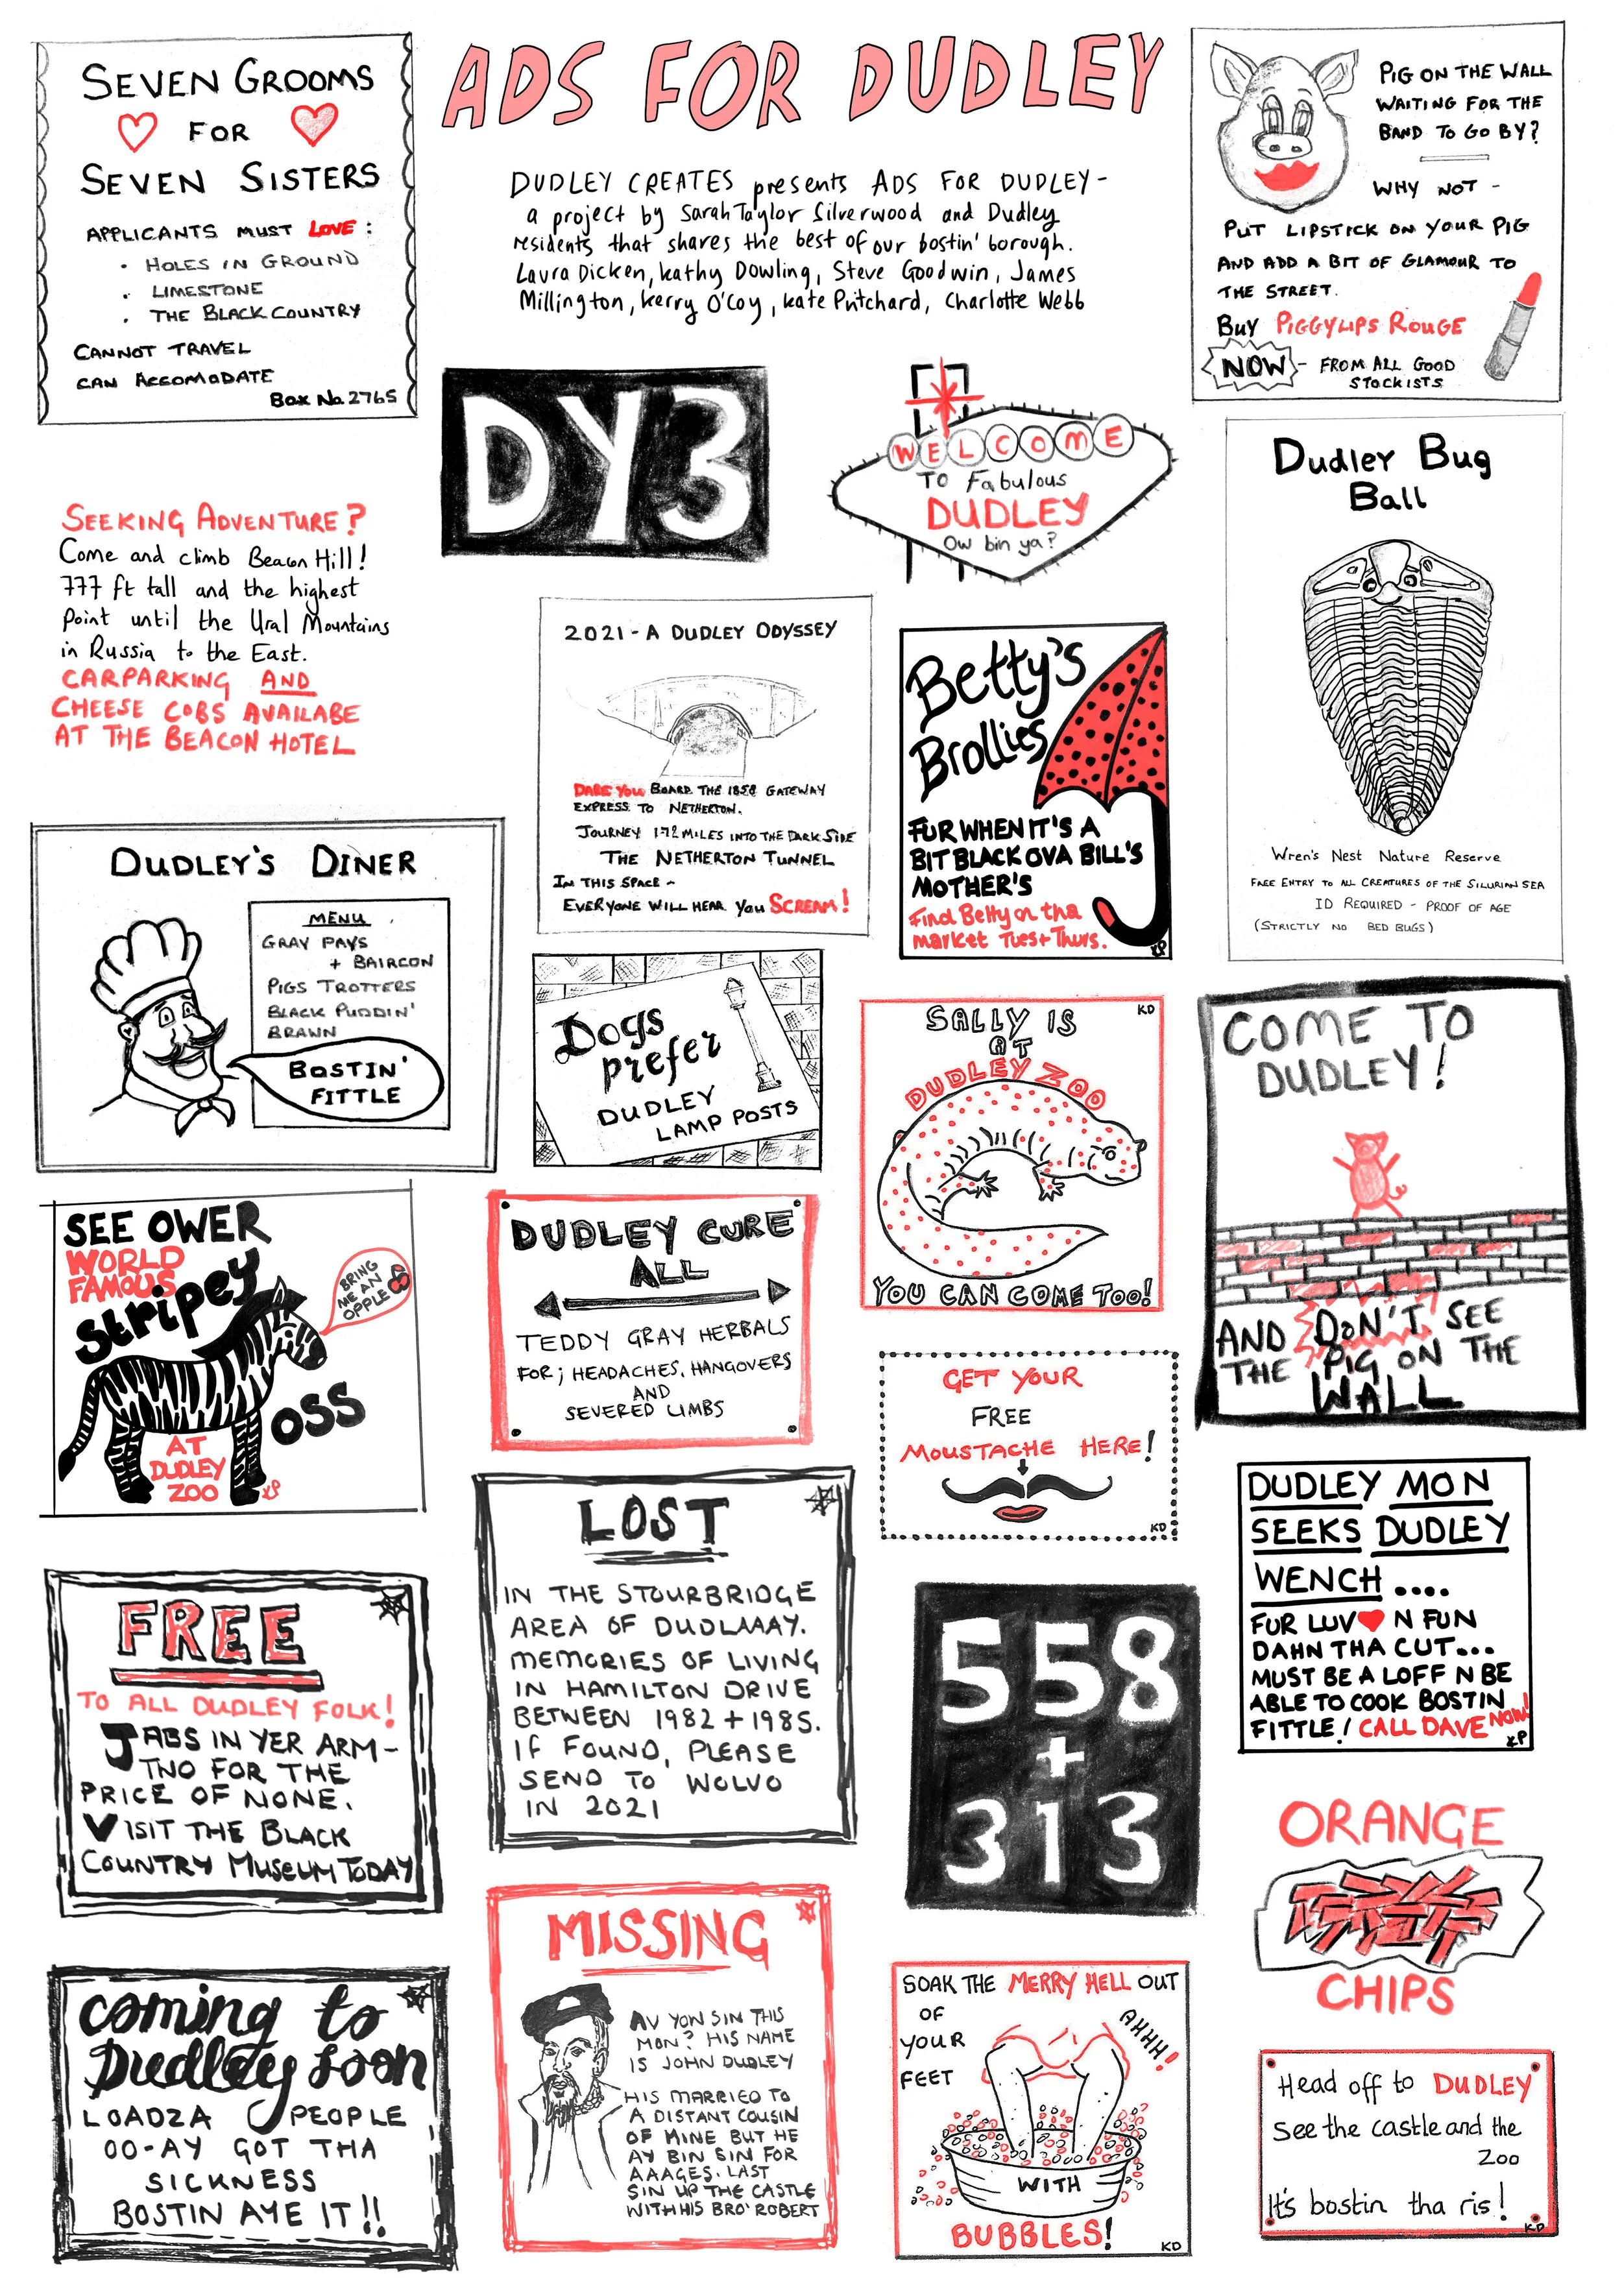 ADS FOR DUDLEY
DUDLEY CREATES presents ADS FOR DUDLEY-
a project by Sarah Taylor Silverwood and Dudley
residents that shares the best of our bostin' borough.
Laura Dicken, Kathy Dowling, Steve Goodwin, James
Millington, Kerry O'Coy, Kate Pritchard, Charlotte Webb
SEVEN GROOMS
FOR
SEVEN SISTERS
APPLICANTS MUST LOVE:
• HOLES IN GROUND
• LIMESTONE
• THE BLACK COUNTRY
CANNOT TRAVEL
CAN ACCOMODATE
Box No. 2765
PIG ON THE WALL
WAITING FOR THE
BAND TO GO BY?
WHY NOT -
PUT LIPSTICK ON YOUR PIG
AND ADD A BIT OF GLAMOUR TO
THE STREET.
BUY PIGGYLIPS ROUGE
NOW - FROM ALL GOOD
STOCKISTS
DY3
WELCOME
TO Fabulous
DUDLEY
Ow bin ya?
Dudley Bug
Ball
Wren's Nest Nature Reserve
FREE ENTRY TO ALL CREATURES OF THE SILURIAN SEA
ID REQUIRED - PROOF OF AGE
(STRICTLY NO BED BUGS)
SEEKING ADVENTURE?
Come and climb Beacon Hill!
777 ft tall and the highest
Point until the Ural Mountains
in Russia to the East.
CARPARKING AND
CHEESE COBS AVAILABE
AT THE BEACON HOTEL
2021 - A DUDLEY ODYSSEY
DARE YOU BOARD THE 1858 GATEWAY
EXPRESS TO NETHERTON.
JOURNEY 1 1/2 MILES INTO THE DARK SIDE
THE NETHERTON TUNNEL
IN THIS SPACE -
EVERYONE WILL HEAR YOU SCREAM!
Betty's
Brollies
FUR WHEN IT'S A
BIT BLACK OVA BILL'S
MOTHER'S
Find Betty on tha
market Tues + Thurs.
KP
DUDLEY'S DINER
MENU
GRAY PAYS
+ BAIRCON
PIGS TROTTERS
BLACK PUDDIN'
BRAWN
BOSTIN'
FITTLE
Dogs
prefer
DUDLEY
LAMP POSTS
SALLY IS
AT
DUDLEY ZOO
YOU CAN COME TOO!
KD
COME TO
DUDLEY!
AND DON'T SEE
THE PIG ON THE
WALL
SEE OWER
WORLD
FAMOUS
Stripey
OSS
BRING
ME AN
OPPLE
AT
DUDLEY
ZOO
KP
DUDLEY CURE
ALL
TEDDY GRAY HERBALS
FOR; HEADACHES, HANGOVERS
AND
SEVERED LIMBS
GET YOUR
FREE
MOUSTACHE HERE!
KD
DUDLEY MON
SEEKS DUDLEY
WENCH....
FUR LUV ♥ N FUN
DAHN THA CUT...
MUST BE A LOFF N BE
ABLE TO COOK BOSTIN
FITTLE! CALL DAVE NOW!
KP
LOST
IN THE STOURBRIDGE
AREA OF DUDLAAAY.
MEMORIES OF LIVING
IN HAMILTON DRIVE
BETWEEN 1982 + 1985.
IF FOUND, PLEASE
SEND TO WOLVO
IN 2021
FREE
TO ALL DUDLEY FOLK!
JABS IN YER ARM-
TWO FOR THE
PRICE OF NONE.
VISIT THE BLACK
COUNTRY MUSEUM TODAY
558
+
313
ORANGE
CHIPS
MISSING
AV YOW SIN THIS
MON? HIS NAME
IS JOHN DUDLEY
HIS MARRIED TO
A DISTANT COUSIN
OF MINE BUT HE
AY BIN SIN FOR
AAAGES. LAST
SIN UP THE CASTLE
WITH HIS BRO' ROBERT
coming to
Dudley soon
LOADZA PEOPLE
OO-AY GOT THA
SICKNESS
BOSTIN AYE IT!!
SOAK THE MERRY HELL OUT
OF
YOUR
FEET
AHHH!
WITH
BUBBLES!
KD
Head off to DUDLEY
See the castle and the
Zoo
It's bostin tha ris!
KD